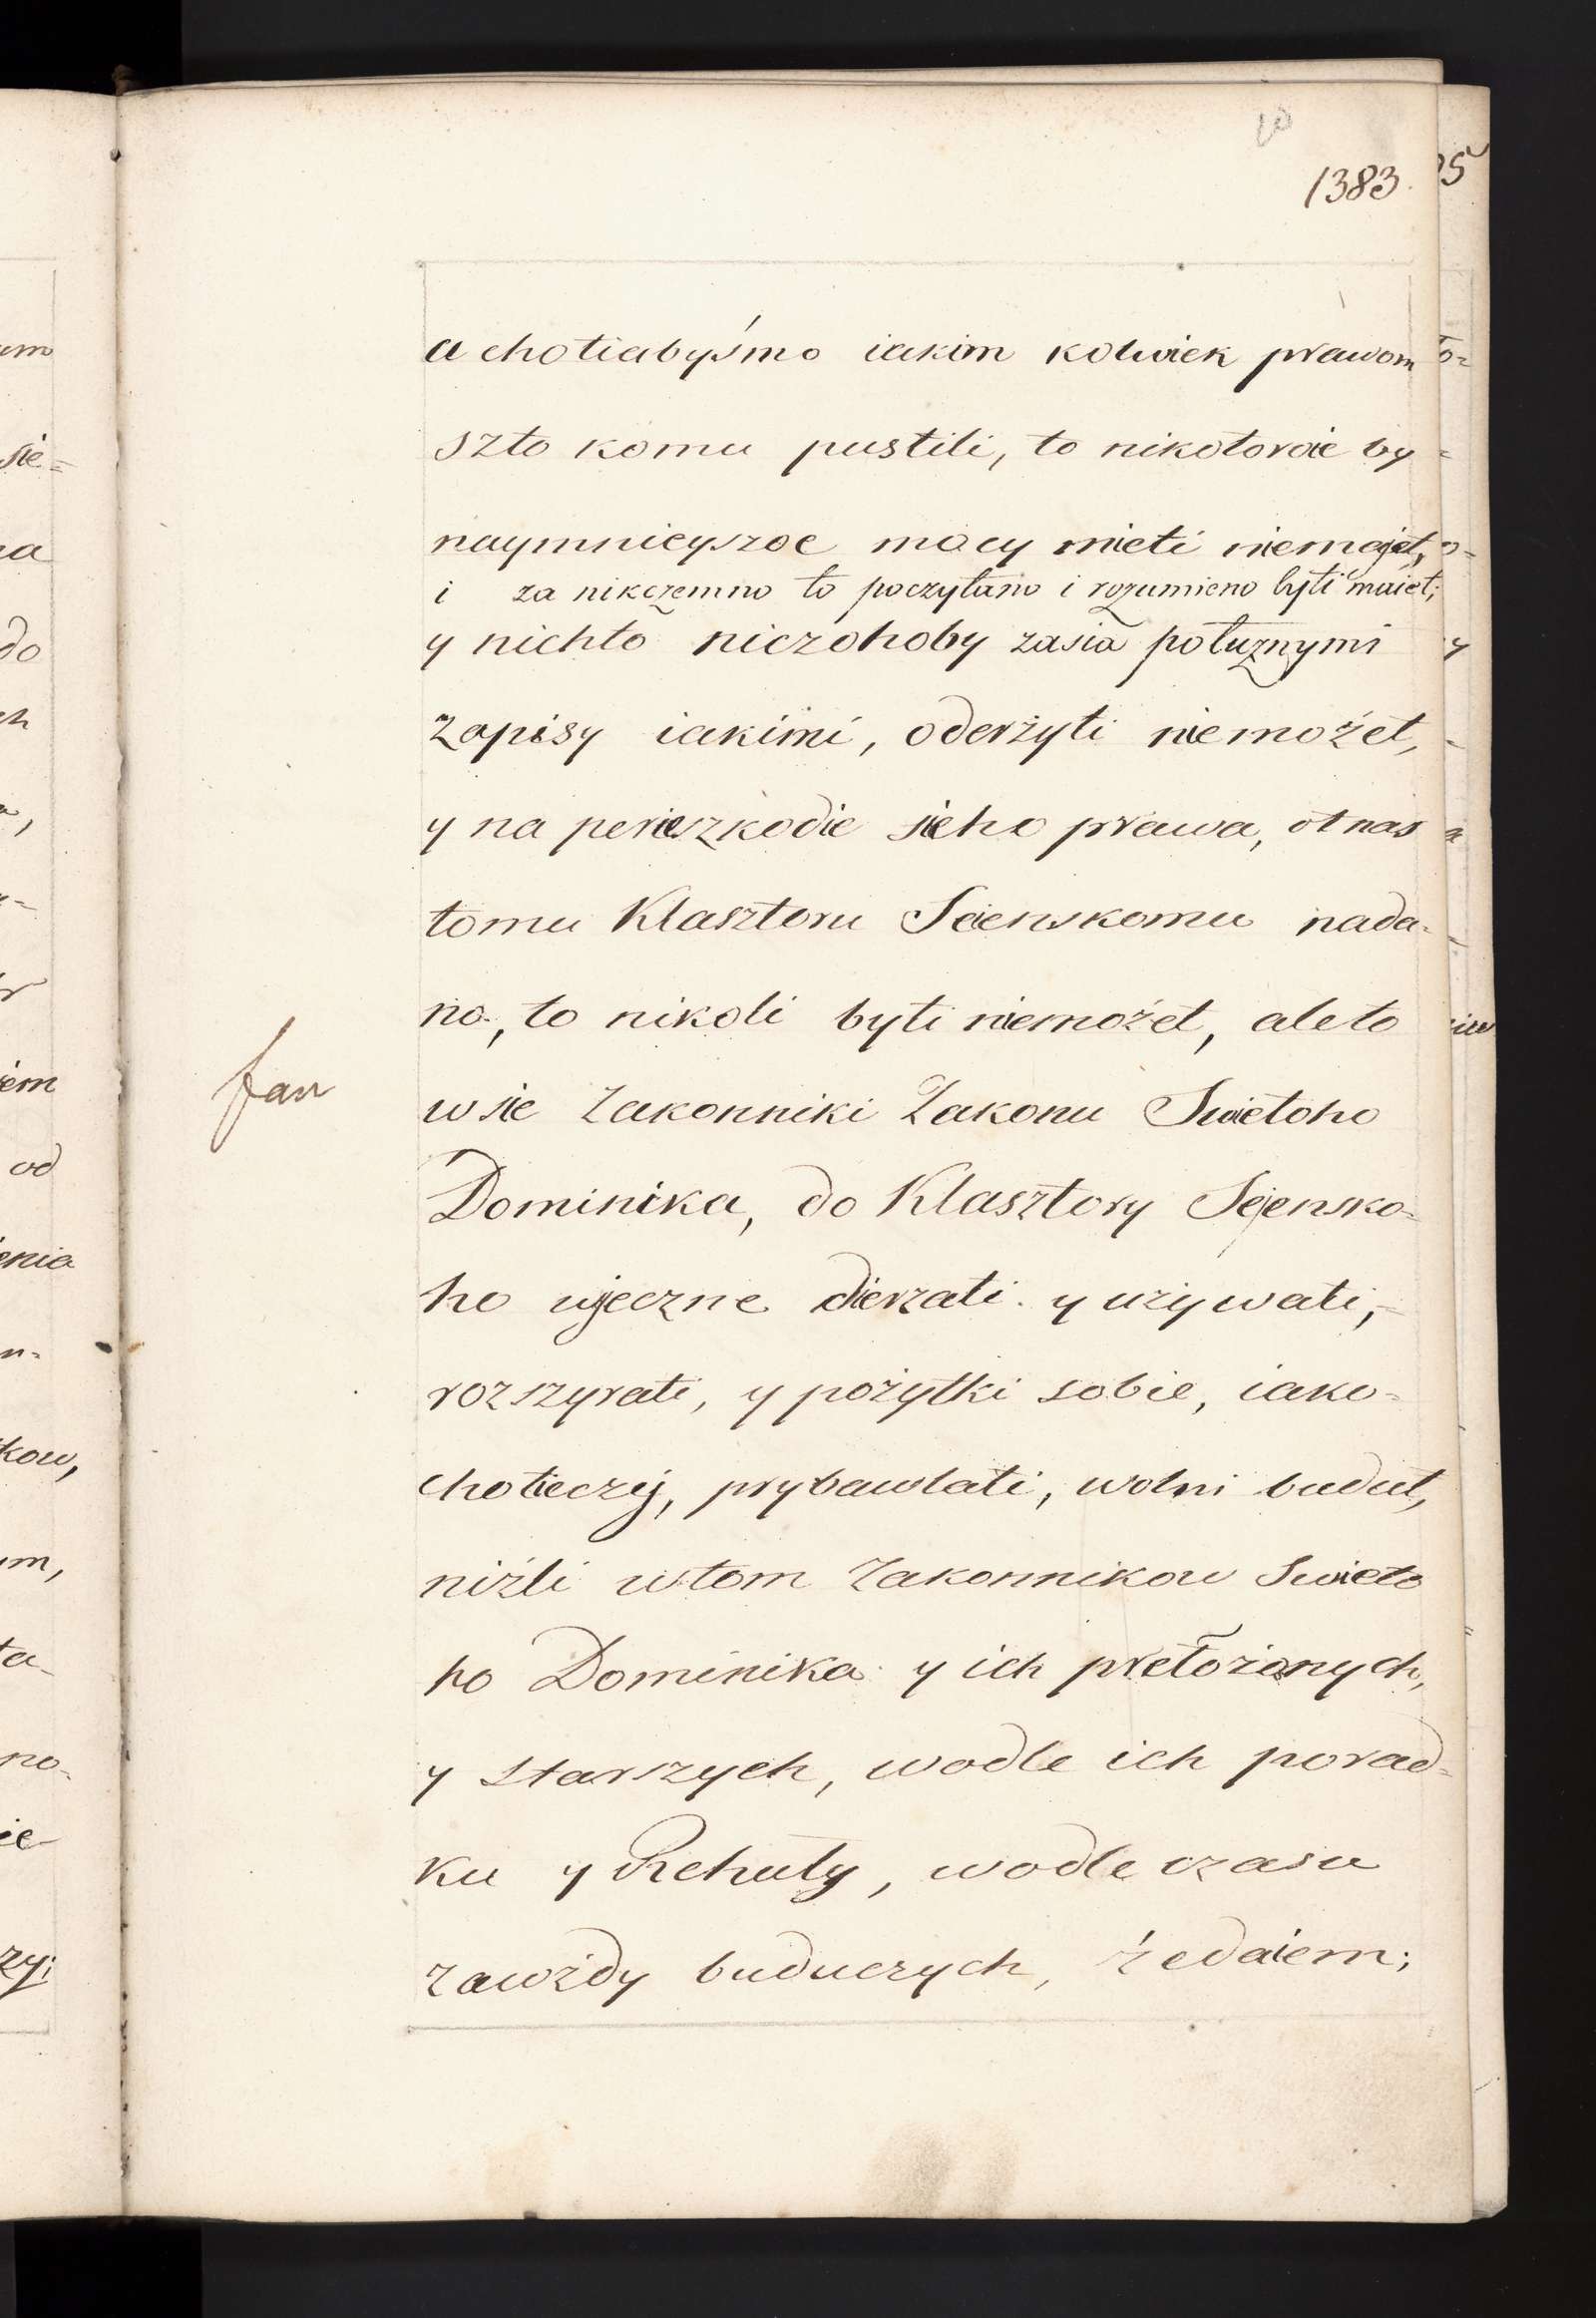 1383.
a chotiabyśmo iakim kolwiek prawom
szto komu pustili, to nikotoroie by
naymnieyszoe mocy mieti niemaiet,
i za nikczemno to poczytano i rozumieno byti maiet;
y nichto niczohoby zasia potużnymi
zapisy iakimi, oderżyti niemożet,
y na perieszkodie sieho prawa, ot nas
tomu Klasztoru Seienskomu nada-
no, to nikoli byti niemożet, ale to
wsie Zakonniki Zakonu Swietoho
Dominika, do Klasztory Sejensko-
ho wjeczne dierzati y używati,
rozszyrati, y pożytki sobie, iako-
chotieczy, prybawlati, wolni budut,
niżli wtom Zakonnikow Swieto
ho Dominika y ich prełożonych,
y starszych, wodle ich porad-
ku y Rehuły, wodle czasu
zawżdy buduczych, żedaiem;